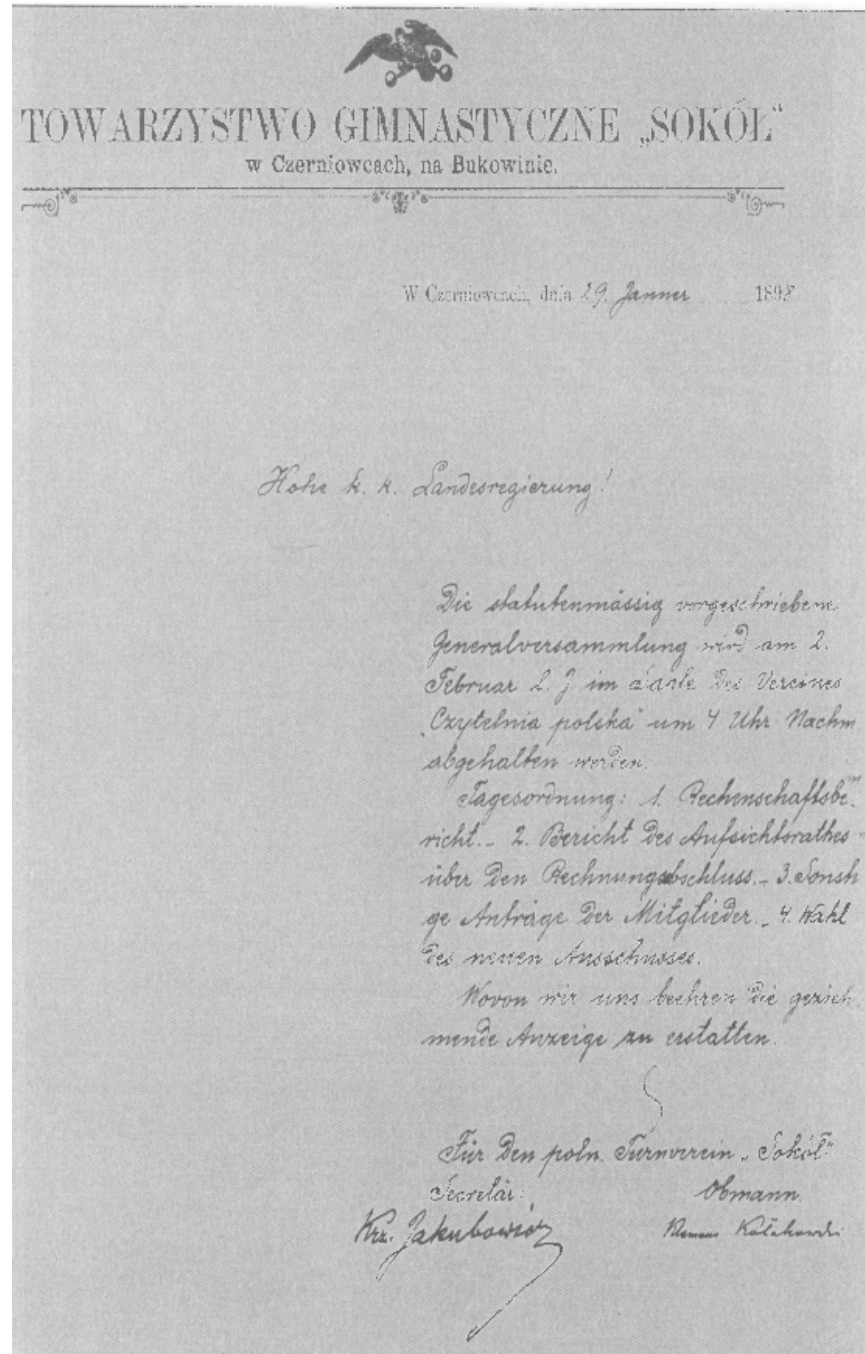 TOWARZYSTWO GIMNASTYCZNE „SOKÓŁ"
w Czerniowcach, na Bukowinie.
W Czerniowcach, dnia 29. Jänner 1898
Hohe k. k. Landesregierung!
Die statutenmässig vorgeschriebene
Generalversammlung wird am 2.
Februar l. J. im Saale des Vereines
„Czytelnia polska" um 4 Uhr Nachm
abgehalten werden.
Tagesordnung: 1. Rechenschaftsbe-
richt. – 2. Bericht des Aufsichtsrathes
über den Rechnungsabschluss. – 3. Sonsti
ge Anträge der Mitglieder. – 4. Wahl
des neuen Ausschusses.
Wovon wir uns beehren die gezieh
mende Anzeige zu erstatten.
Für den poln. Turnverein „Sokół"
Secretär: Obmann
Krz. Jakubowicz